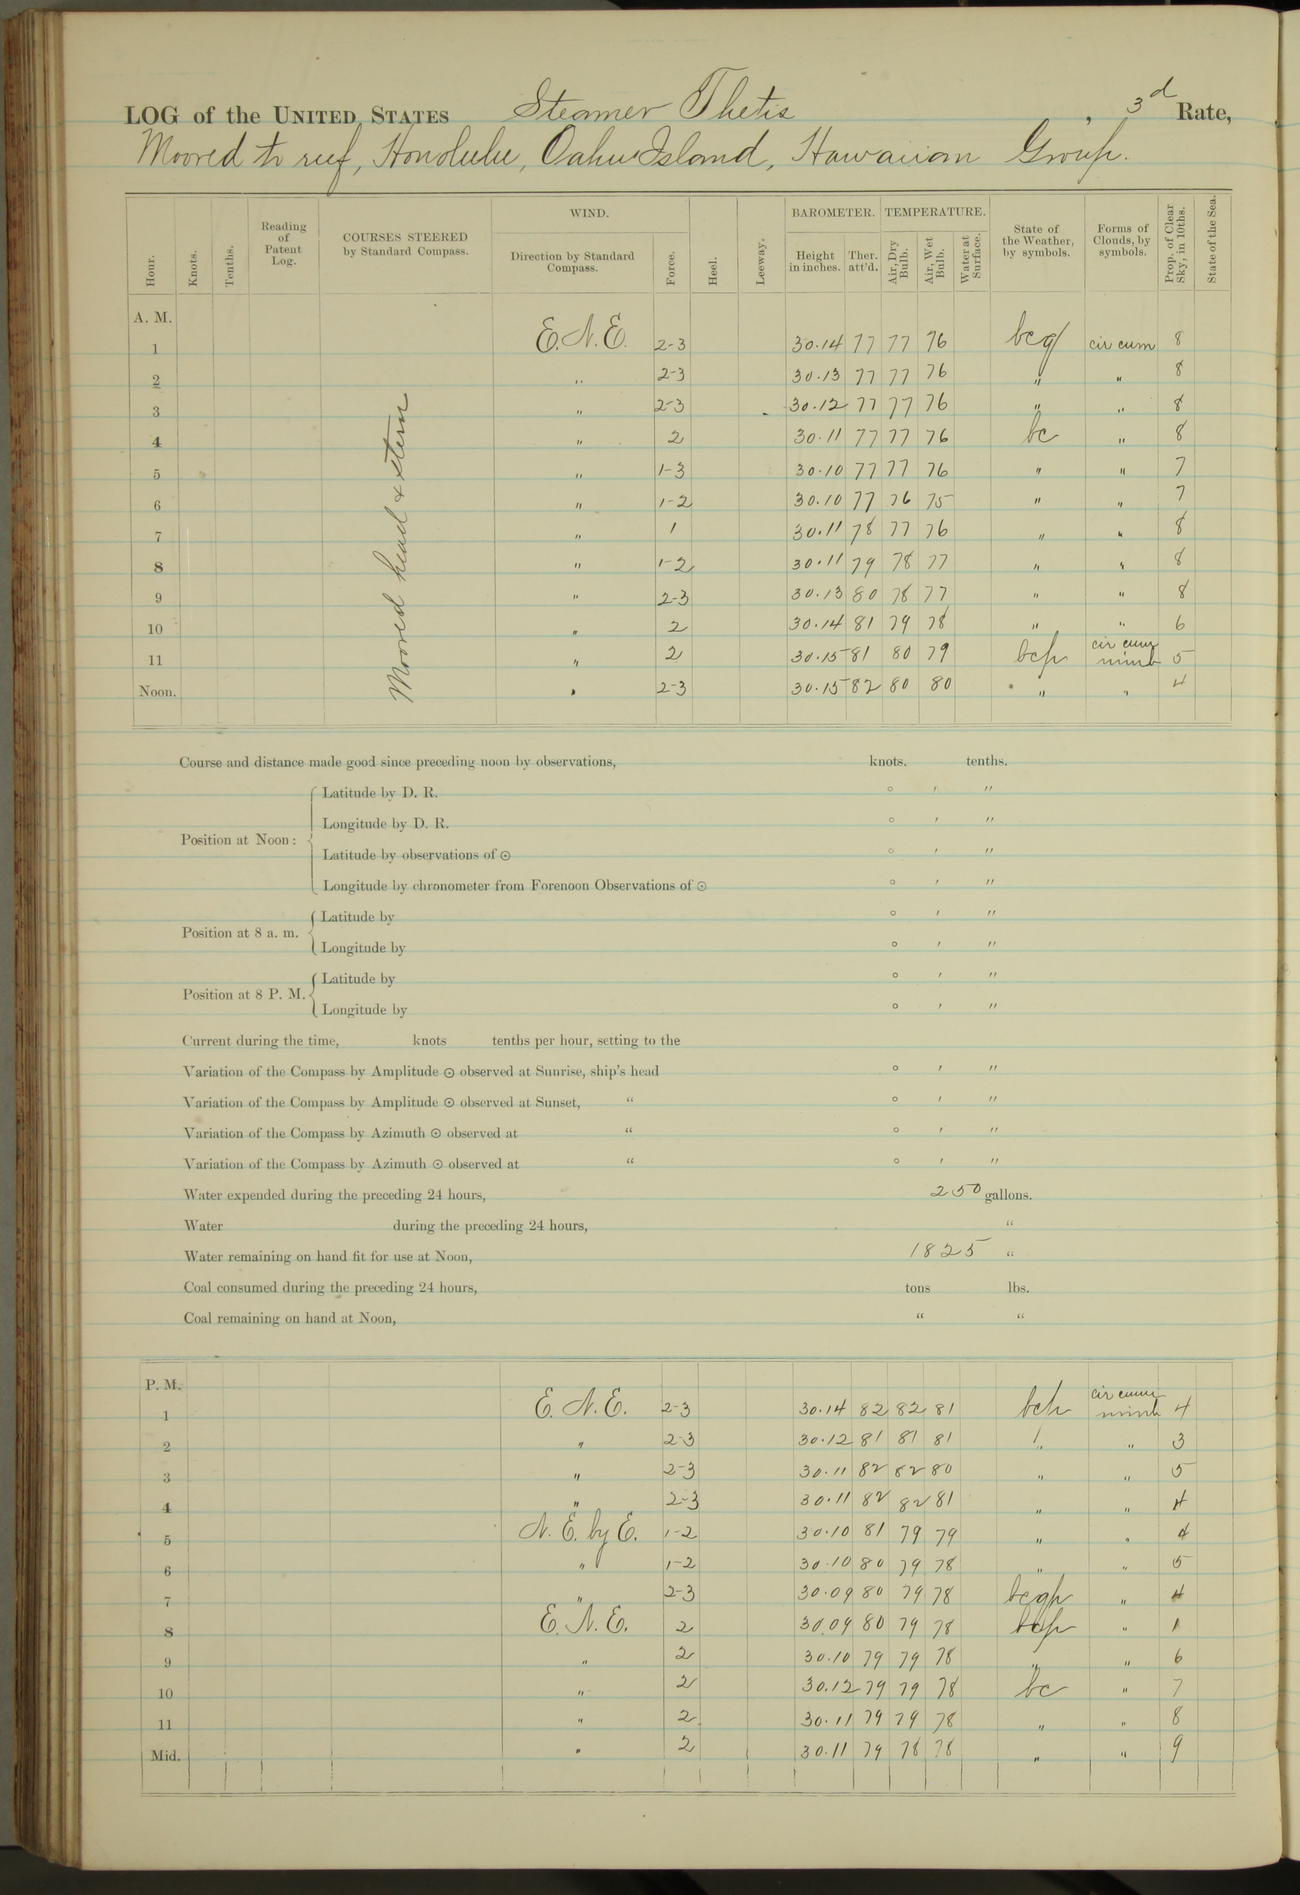 LOG of the UNITED STATES Steamer Thetis, 3d Rate,
Moored to reef, Honolulu, Oahu Island, Hawaiian Group.
WIND. BAROMETER. TEMPERATURE.
Hour. Knots. Tenths. Reading of Patent Log. COURSES STEERED by Standard Compass. Direction by Standard Compass. Force. Heel. Leeway. Height in inches. Ther. att'd. Air, Dry Bulb. Air, Wet Bulb. Water at Surface. State of the Weather, by symbols. Forms of Clouds, by symbols. Prop. of Clear Sky, in 10ths. State of the Sea.
Moored head & stern
A. M.
1 E.N.E. 2-3 30.14 77 77 76 bcq cir cum 8
2 " 2-3 30.13 77 77 76 " " 8
3 " 2-3 30.12 77 77 76 " " 8
4 " 2 30.11 77 77 76 bc " 8
5 " 1-3 30.10 77 77 76 " " 7
6 " 1-2 30.10 77 76 75 " " 7
7 " 1 30.11 78 77 76 " " 8
8 " 1-2 30.11 79 78 77 " " 8
9 " 2-3 30.13 80 78 77 " " 8
10 " 2 30.14 81 79 78 " " 6
11 " 2 30.15 81 80 79 bcp cir cum nimb 5
Noon. " 2-3 30.15 82 80 80 " " 4
Course and distance made good since preceding noon by observations, knots. tenths.
Position at Noon:
Latitude by D. R. ° ′ ″
Longitude by D. R. ° ′ ″
Latitude by observations of ⊙ ° ′ ″
Longitude by chronometer from Forenoon Observations of ⊙ ° ′ ″
Position at 8 a. m.
Latitude by ° ′ ″
Longitude by ° ′ ″
Position at 8 P. M.
Latitude by ° ′ ″
Longitude by ° ′ ″
Current during the time, knots tenths per hour, setting to the
Variation of the Compass by Amplitude ⊙ observed at Sunrise, ship's head ° ′ ″
Variation of the Compass by Amplitude ⊙ observed at Sunset, " ° ′ ″
Variation of the Compass by Azimuth ⊙ observed at " ° ′ ″
Variation of the Compass by Azimuth ⊙ observed at " ° ′ ″
Water expended during the preceding 24 hours, 250 gallons.
Water during the preceding 24 hours, "
Water remaining on hand fit for use at Noon, 1825 "
Coal consumed during the preceding 24 hours, tons lbs.
Coal remaining on hand at Noon, " "
P. M.
1 E.N.E. 2-3 30.14 82 82 81 bcp cir cum nimb 4
2 " 2-3 30.12 81 81 81 " " 3
3 " 2-3 30.11 82 82 80 " " 5
4 " 2-3 30.11 82 82 81 " " 4
5 N.E. by E. 1-2 30.10 81 79 79 " " 4
6 " 1-2 30.10 80 79 78 " " 5
7 " 2-3 30.09 80 79 78 bcqp " 4
8 E.N.E. 2 30.09 80 79 78 bcp " 1
9 " 2 30.10 79 79 78 " " 6
10 " 2 30.12 79 79 78 bc " 7
11 " 2 30.11 79 79 78 " " 8
Mid. " 2 30.11 79 78 78 " " 9